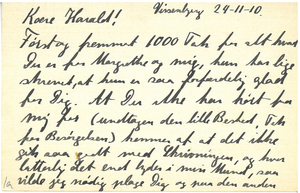 Nissenbjerg 24-11-10.
Kære Harald!
Først og fremmest 1000 Tak for alt hvad
Du er for Margrethe og mig, hun har lige
skrevet, at hun er saa forfærdelig glad
for Dig. At Du ikke har hørt fra
mig før (undtagen den lille Besked, Tak
for Besørgelsen) kommer af at det ikke
gik saa godt med Skrivningen, og hvor
latterlig det end lyder i min Mund, saa
vilde jeg nødig plage Dig og paa den anden
1a